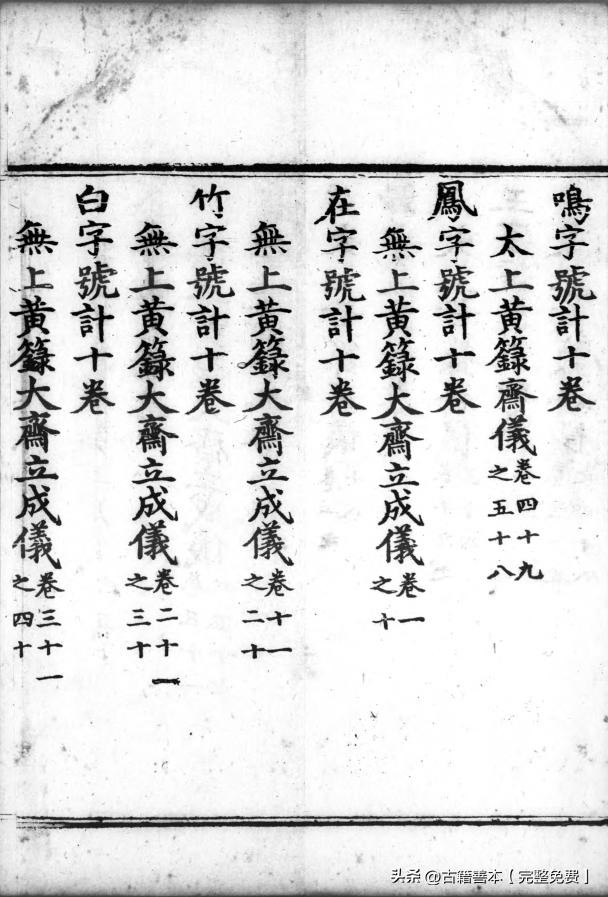 鳴字號計十卷
太上黃籙齋儀卷四十九之五十八
鳳字號計十卷
無上黃籙大齋立成儀卷一之十
在字號計十卷
無上黃籙大齋立成儀卷十一之二十
竹字號計十卷
無上黃籙大齋立成儀卷二十一之三十
白字號計十卷
無上黃籙大齋立成儀卷三十一之四十
头条 @古籍善本【完整免费】